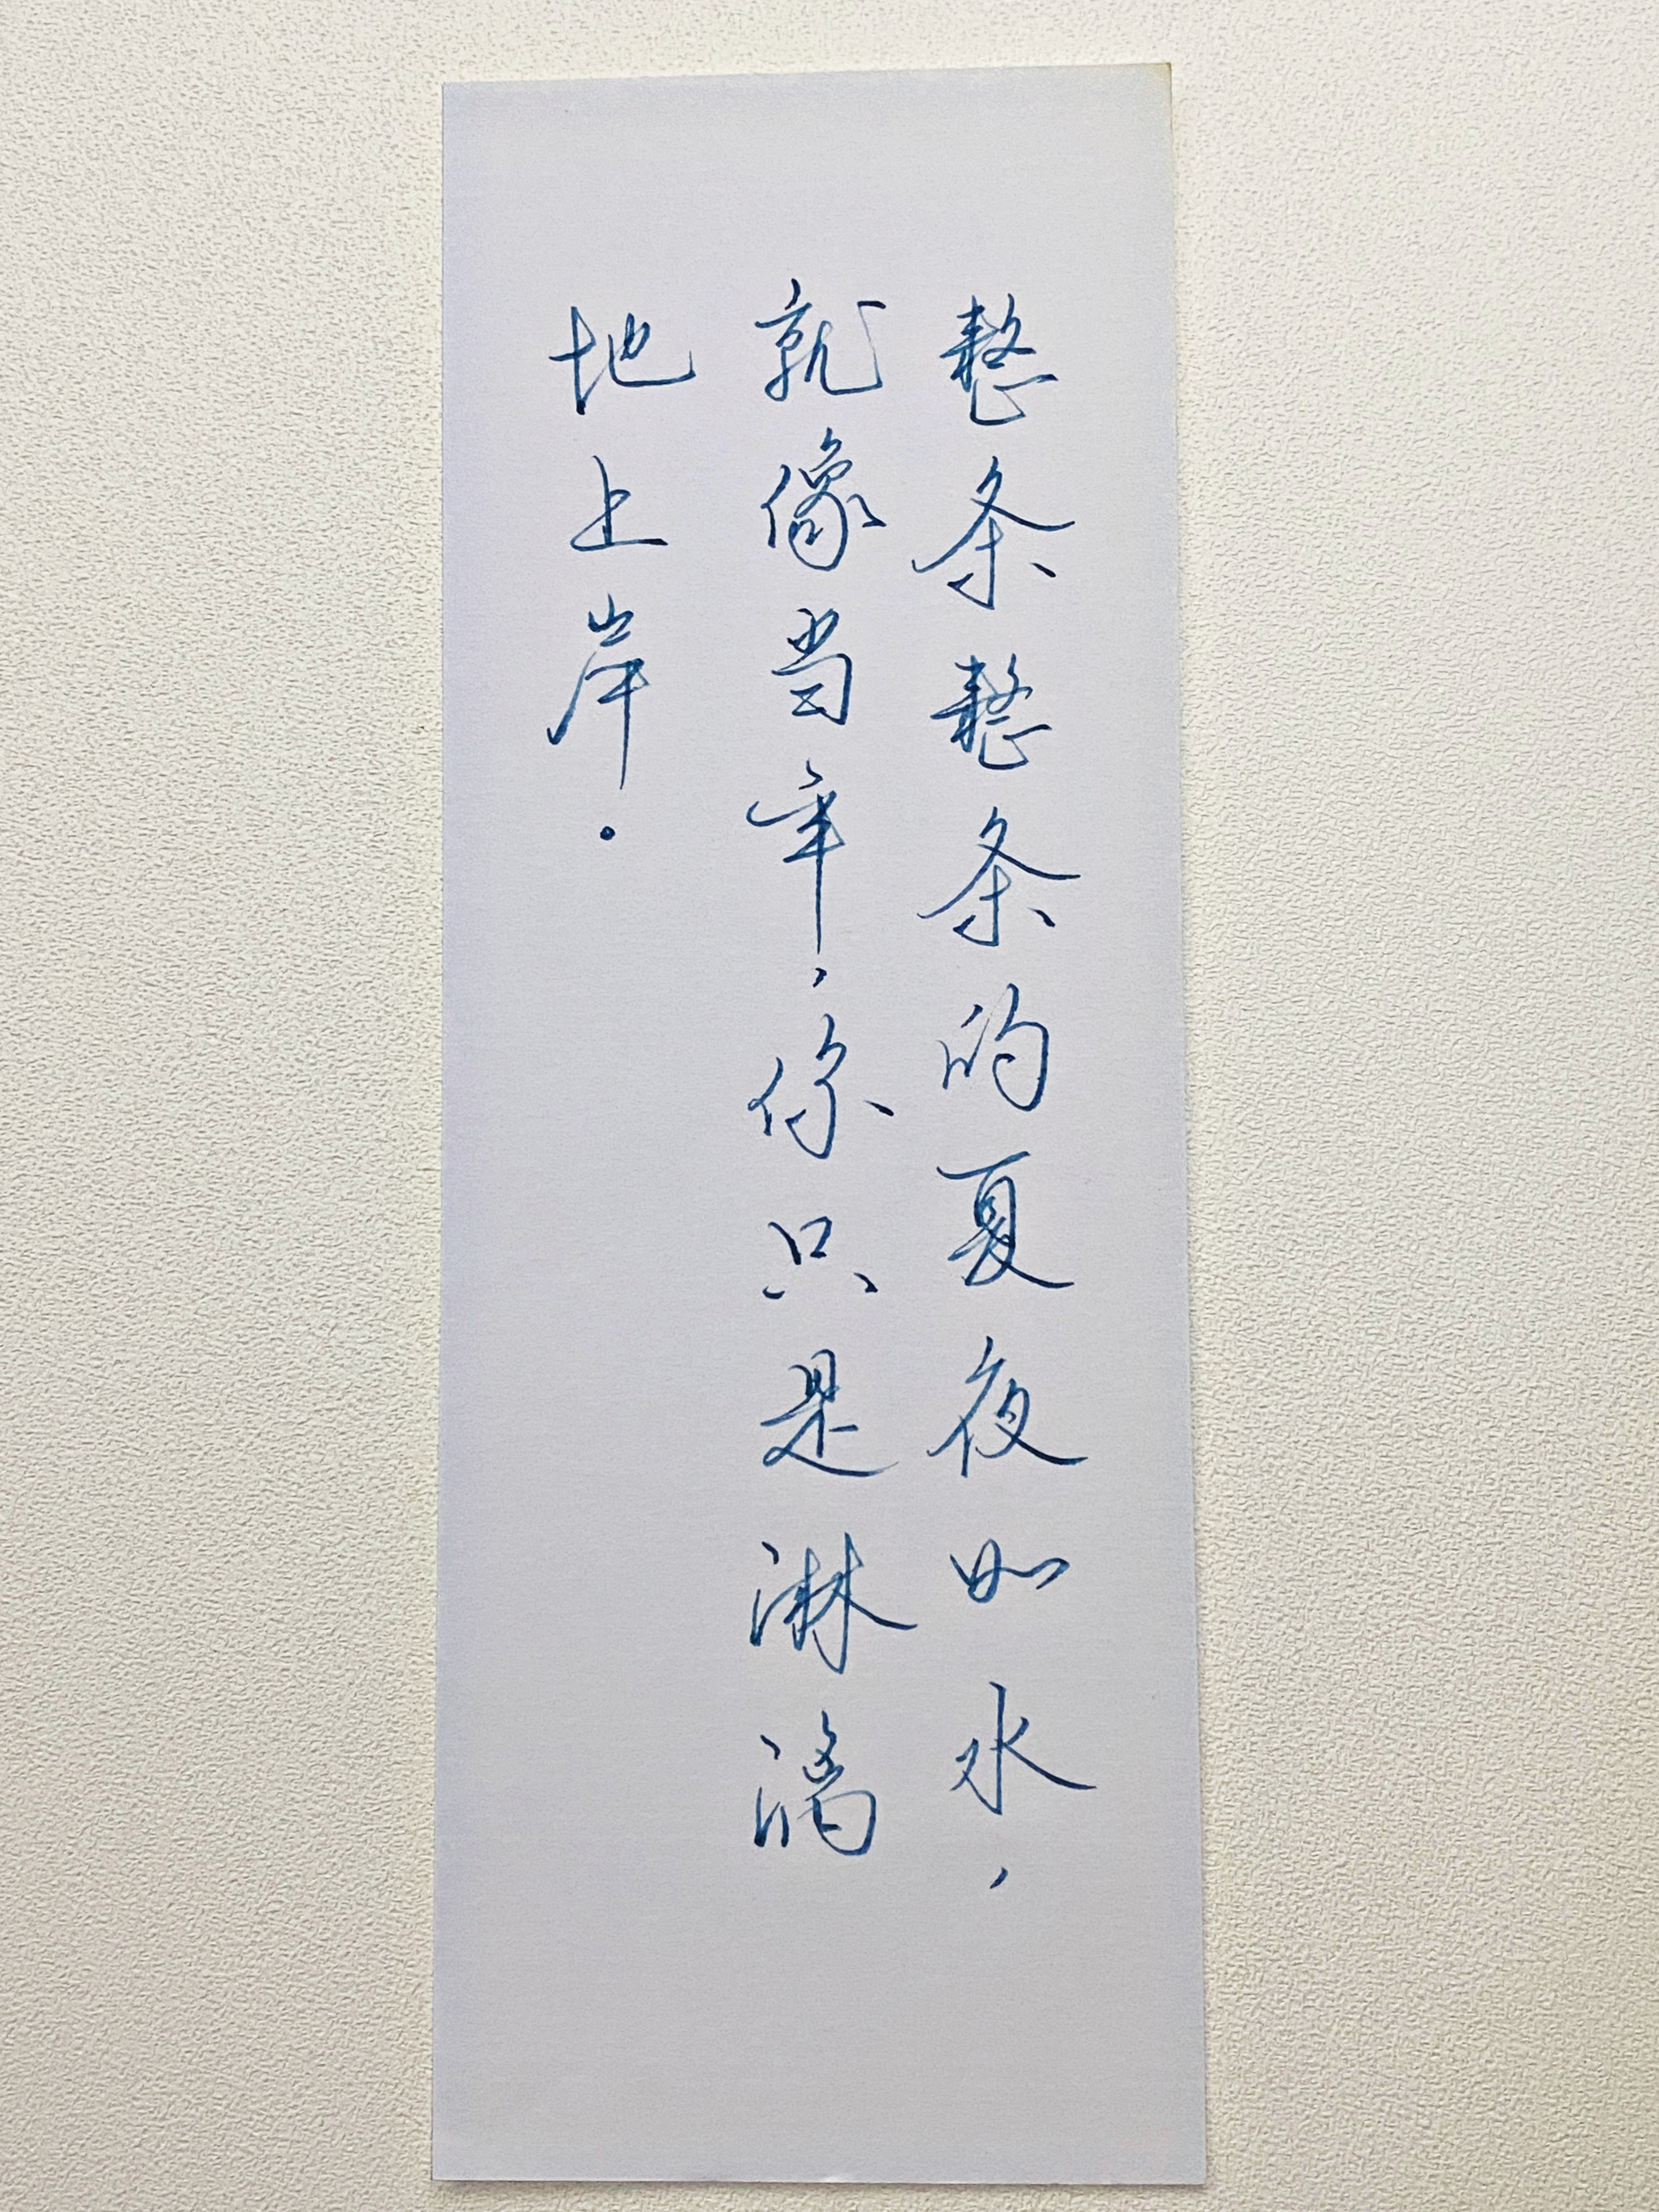 整条整条的夏夜如水，
就像当年，你只是淋漓
地上岸.